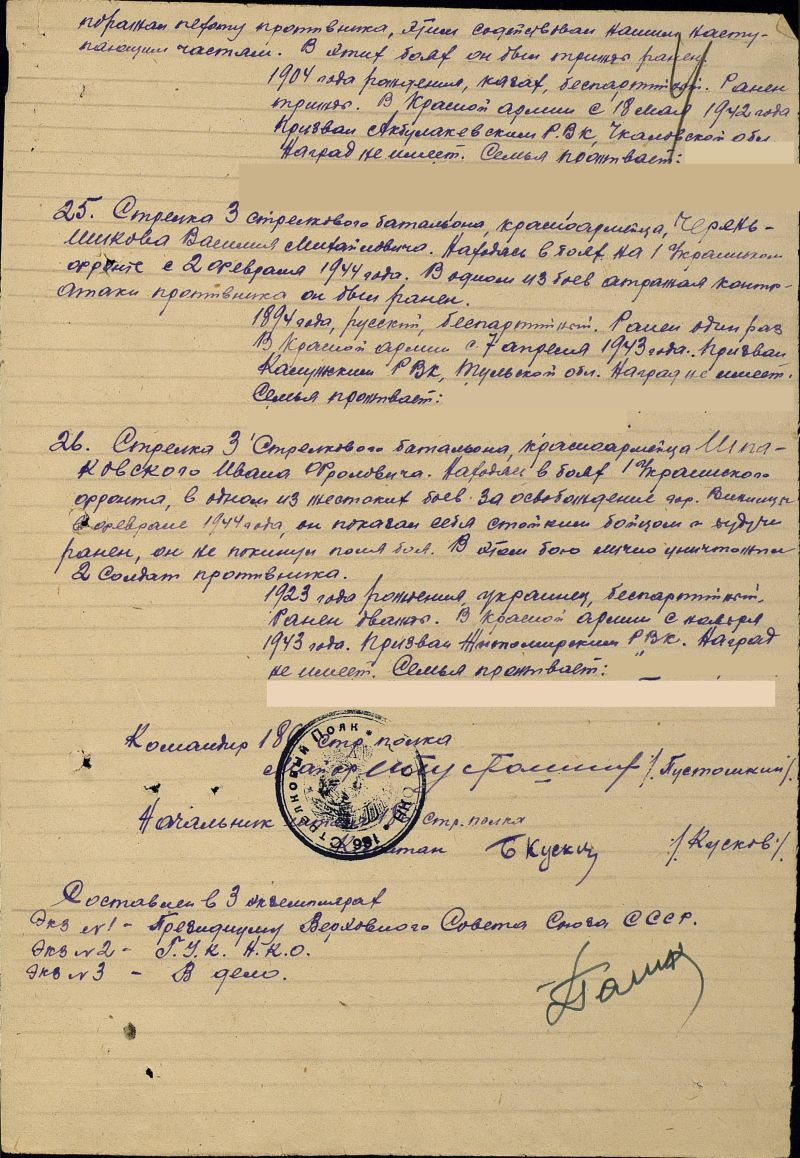 поражал пехоту противника, этим содействовал нашим насту-
пающим частям. В этих боях он был трижды ранен.
1904 года рождения, казах, беспартийный. Ранен
трижды. В Красной армии с 18 мая 1942 года
Призван Акбулакевским Р.В.К, Чкаловской обл.
Наград не имеет. Семья проживает:
25. Стрелка 3 стрелкового батальона, красноармейца, Черень-
шикова Василия Михайловича. Находясь в боях на 1 Украинском
фронте с 2 февраля 1944 года. В одном из боев отражая контр-
атаки противника он был ранен.
1894 года, русский, беспартийный. Ранен один раз
В Красной армии с 7 апреля 1943 года. Призван
Калужским РВК, Тульской обл. Наград не имеет.
Семья проживает:
26. Стрелка 3 Стрелкового батальона, красноармейца Шпа-
ковского Ивана Фроловича. Находясь в боях 1 Украинского
фронта, в одном из жестоких боев за освобождение гор. Винницы
в феврале 1944 года, он показал себя стойким бойцом и будучи
ранен, он не покинул поля боя. В этом бою лично уничтожил
2 солдат противника.
1923 года рождения, украинец, беспартийный.
Ранен дважды. В красной армии с ноября
1943 года. Призван Житомирским РВК. Наград
не имеет. Семья проживает:
Командир 186 стр. полка
Майор /Пустошкин/.
Начальник стр. полка
Капитан БКусков /Кусков/.
186 Стрелковый Полк * НКО *
Составлен в 3 экземплярах
Экз №1 - Президиуму Верховного Совета Союза СССР.
Экз №2 - Г.У.К. Н.К.О.
Экз №3 - В дело.